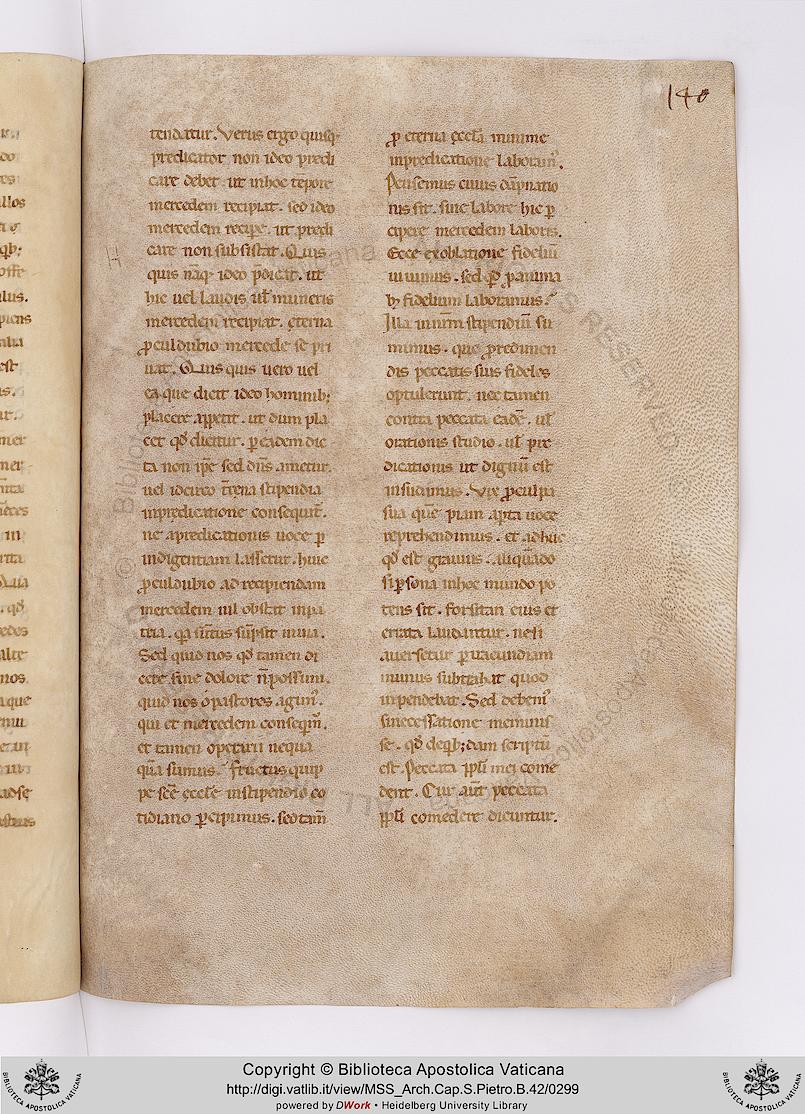 140
tendatur. Verus ergo quisq;
predicator non ideo predi
care debet. ut inhoc tēpore
mercedem recipiat. sed ideo
mercedem recipe. ut predi
care non subsistat. Quis
quis nāq; ideo p̄dicat. ut
hic uel laudis uł muneris
mercedem recipiat. ęterna
ꝓculdubio mercede se pri
uat. Quisquis uero uel
ea que dicit ideo hominib;
placere appetit. ut dum pla
cet qđ dicitur. ꝑ eadem dic
ta non ipse sed dn̄s ametur.
uel idcirco t̄rena stipendia
inpredicatione consequit᷑.
ne apredicationis uoce ꝑ
indigentiam lassetur. huic
ꝓculdubio ad recipiendam
mercedem nil obstat inpa
tria. q̄a sūtus sūpsit inuia.
Sed quid nos qđ tamen di
cere sine dolore n̄ possum᷒.
quid nos o pastores agim᷒.
qui et mercedem conseqm̄᷒.
et tamen operarii nequa
quā sumus. fructus quip
pe scē ęcclę instipendio co
tidiano ꝑcipimus. sed tam̄
ꝓ eterna ęccłia minime
inpredicatione laboram᷒.
Pensemus cuius dāpnatio
nis sit. sine labore hic ꝑ
cipere mercedem laboris.
Ecce exoblatione fideliū
uiuimus. sed qđ ꝓ anima
bꝫ fidelium laboramus?
Illa in nr̄m stipendiū su
mimus. que ꝓ redimen
dis peccatis suis fideles
optulerunt. nec tamen
contra peccata eadē. uł
orationis studio. uł pre
dicationis ut dignū est
insudamus. Vix ꝓ culpa
sua quē piam apta uoce
reprehendimus. et adhuc
qđ est grauius. aliquādo
si ꝑsona inhoc mundo po
tens sit. forsitan eius er
rata laudantur. ne si
auersetur ꝑ iracundiam
munus subtrahat quod
inpendebat. Sed debem᷒
sinecessatione meminis
se. qđ deqb;dam scriptū
est. Peccata ppłi mei come
dent. Cur aut̄ peccata
ppłi comedere dicuntur.
Copyright © Biblioteca Apostolica Vaticana
http://digi.vatlib.it/view/MSS_Arch.Cap.S.Pietro.B.42/0299
powered by DWork • Heidelberg University Library